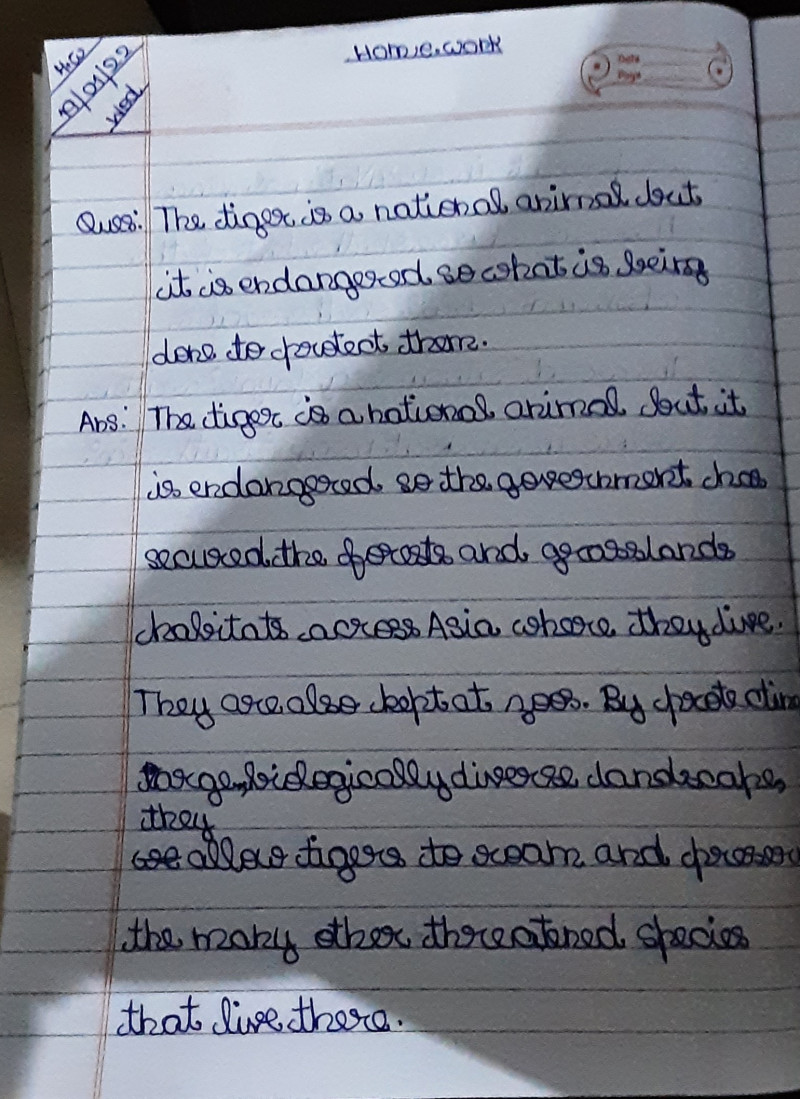 H.W
Home.work
19/01/22
Wed
Date
Page
Ques: The tiger is a national animal but
it is endangered so what is being
done to protect them.
Ans: The tiger is a national animal but it
is endangered so the government has
secured the forests and grasslands
habitats across Asia where they live.
They are also kept at zoos. By protectin
large, biologically diverse landscape,
they
we allow tigers to roam and preserv
the many other threatened species
that live there.